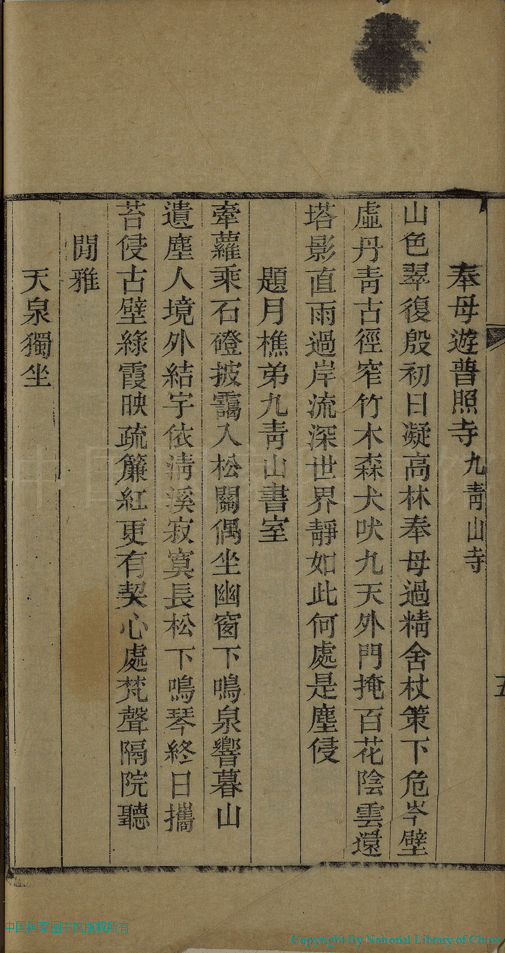 奉母遊普照寺九青山寺
山色翠復殷初日凝高林奉母過精舍杖策下危岑壁
虛丹青古徑窄竹木森犬吠九天外門掩百花陰雲還
塔影直雨過岸流深世界靜如此何處是塵侵
題月樵弟九青山書室
牽蘿乘石磴披靄入松關偶坐幽窗下鳴泉響暮山
遺塵人境外結宇依清溪寂寞長松下鳴琴終日攜
苔侵古壁綠霞映疏簾紅更有契心處梵聲隔院聽
閒雅
天泉獨坐
中国国家图书馆版权所有
Copyright By National Library of China